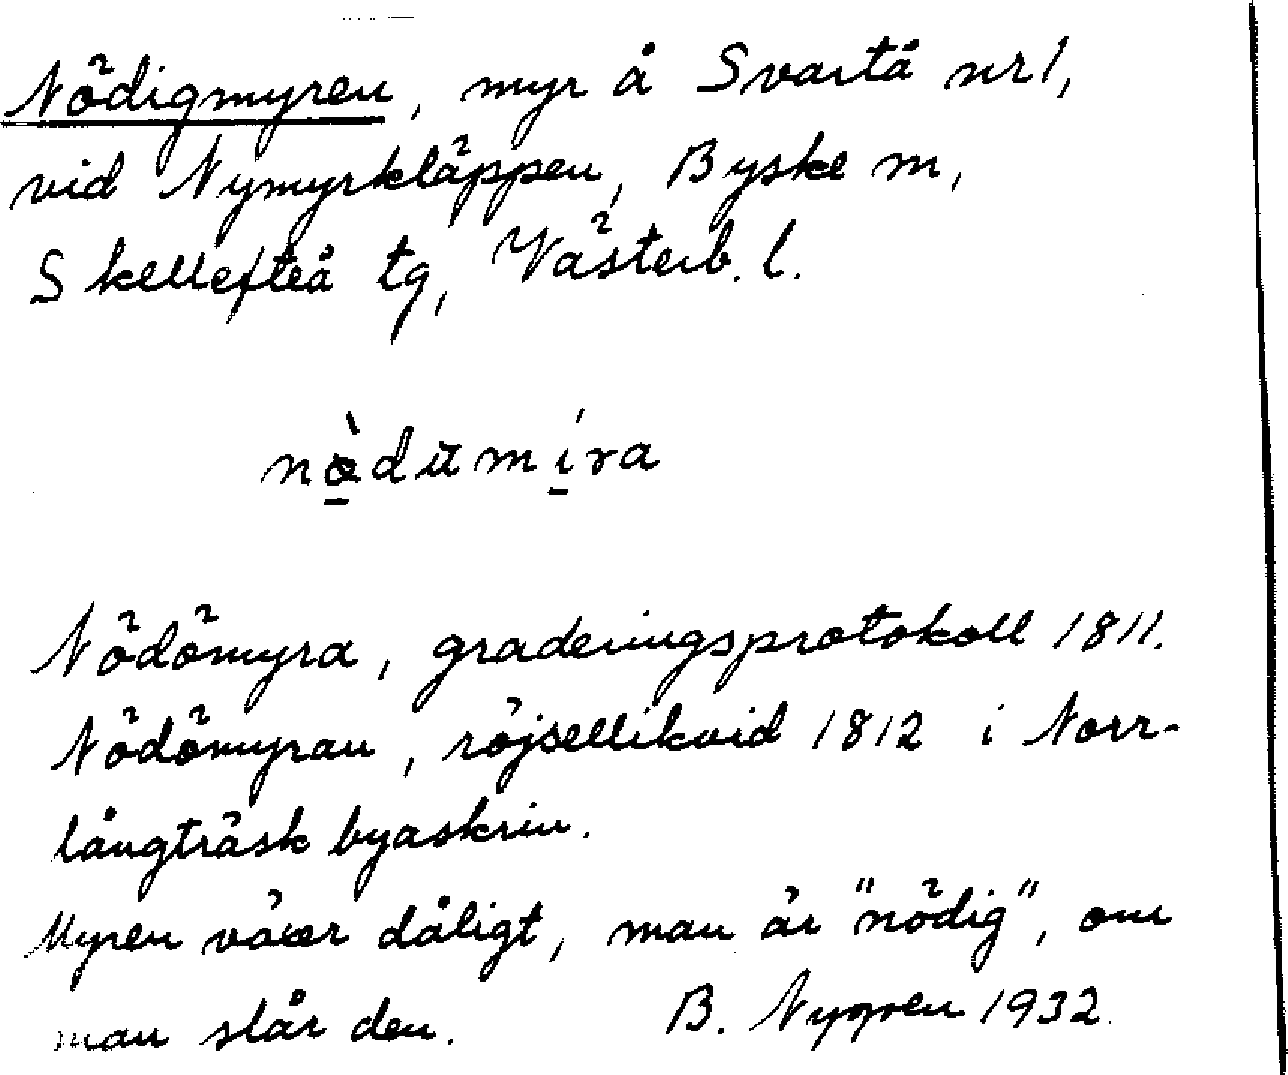 Nödigmyren, myr å Svartå nr 1,
vid Nymyrkläppen, Byske m,
Skellefteå tg, Västerb. l.
nø̱̀dŭmi̱ra
Nödömyra, graderingsprotokoll 1811.
Nödömyran, röjsellikvid 1812 i Norr-
långträsk byaskrin.
Myren växer dåligt, man är "nödig", om
man slår den. B. Nygren 1932.